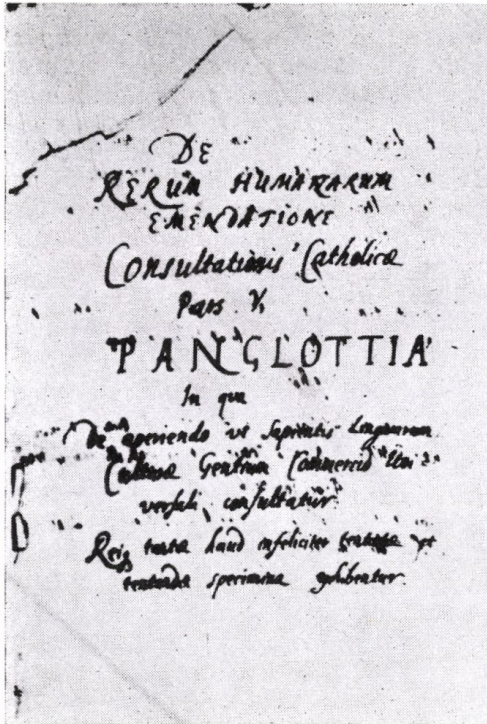 DE
RERUM HUMANARUM
EMENDATIONE
Consultationis Catholicæ
Pars V,
PANGLOTTIA
In qua
De aperiendo Lingvarum
Cultura Gentium Commercio Uni=
versali, consultatur
Reiq tantæ haud infeliciter tentatæ et
tentandæ specimina exhibentur.